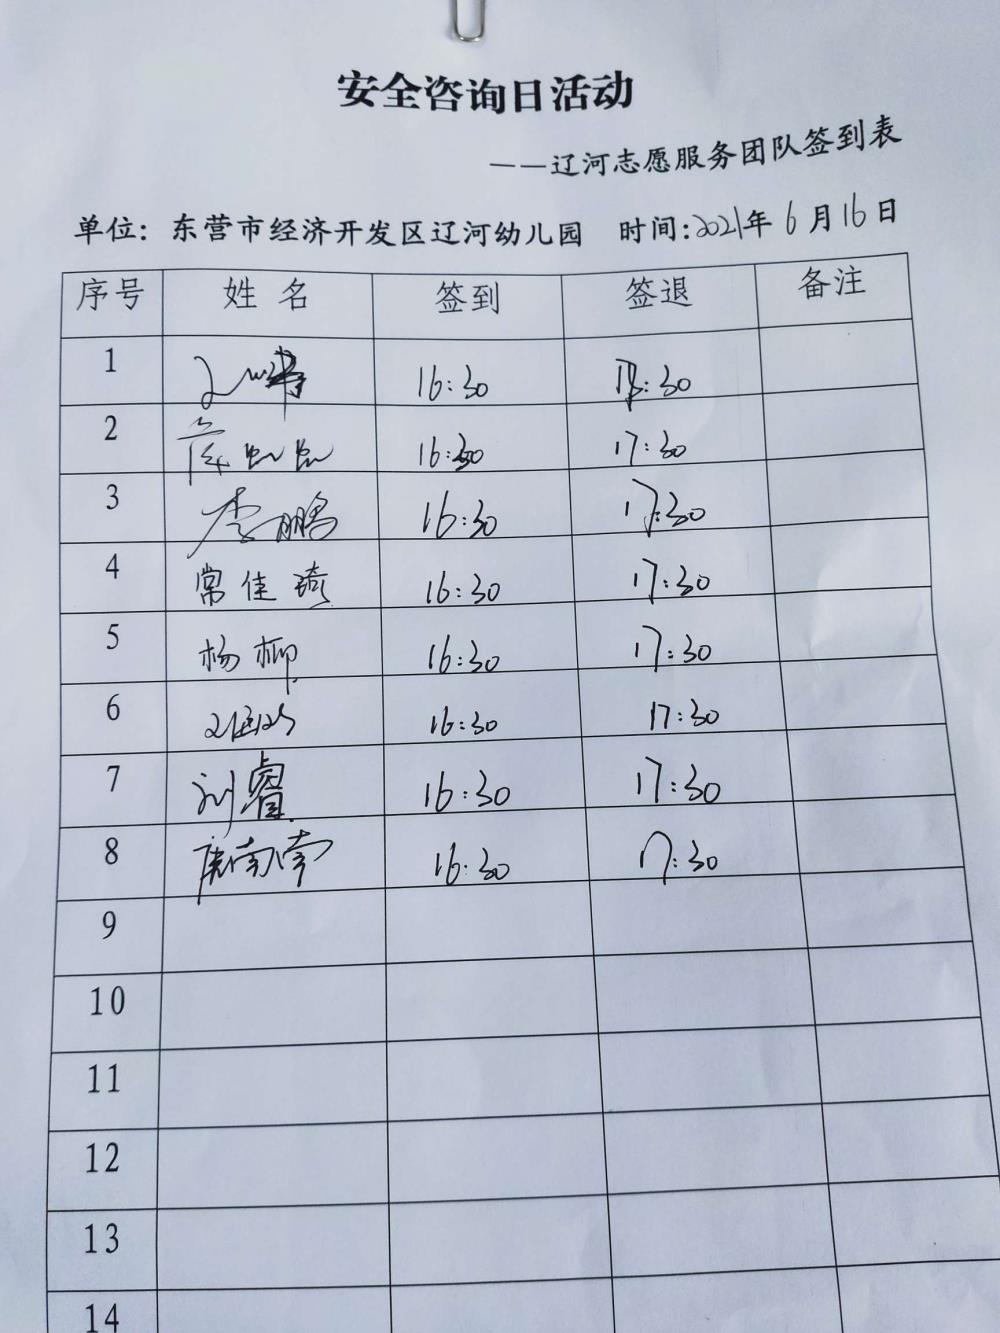 安全咨询日活动
——辽河志愿服务团队签到表
单位：东营市经济开发区辽河幼儿园 时间:2021年6月16日
序号 姓名 签到 签退 备注
1 16:30
2 16:30 17:30
3 李鹏 16:30 17:30
4 常佳琦 16:30 17:30
5 杨柳 16:30 17:30
6 16:30 17:30
7 刘睿 16:30 17:30
8 南南 16:30 17:30
9
10
11
12
13
14